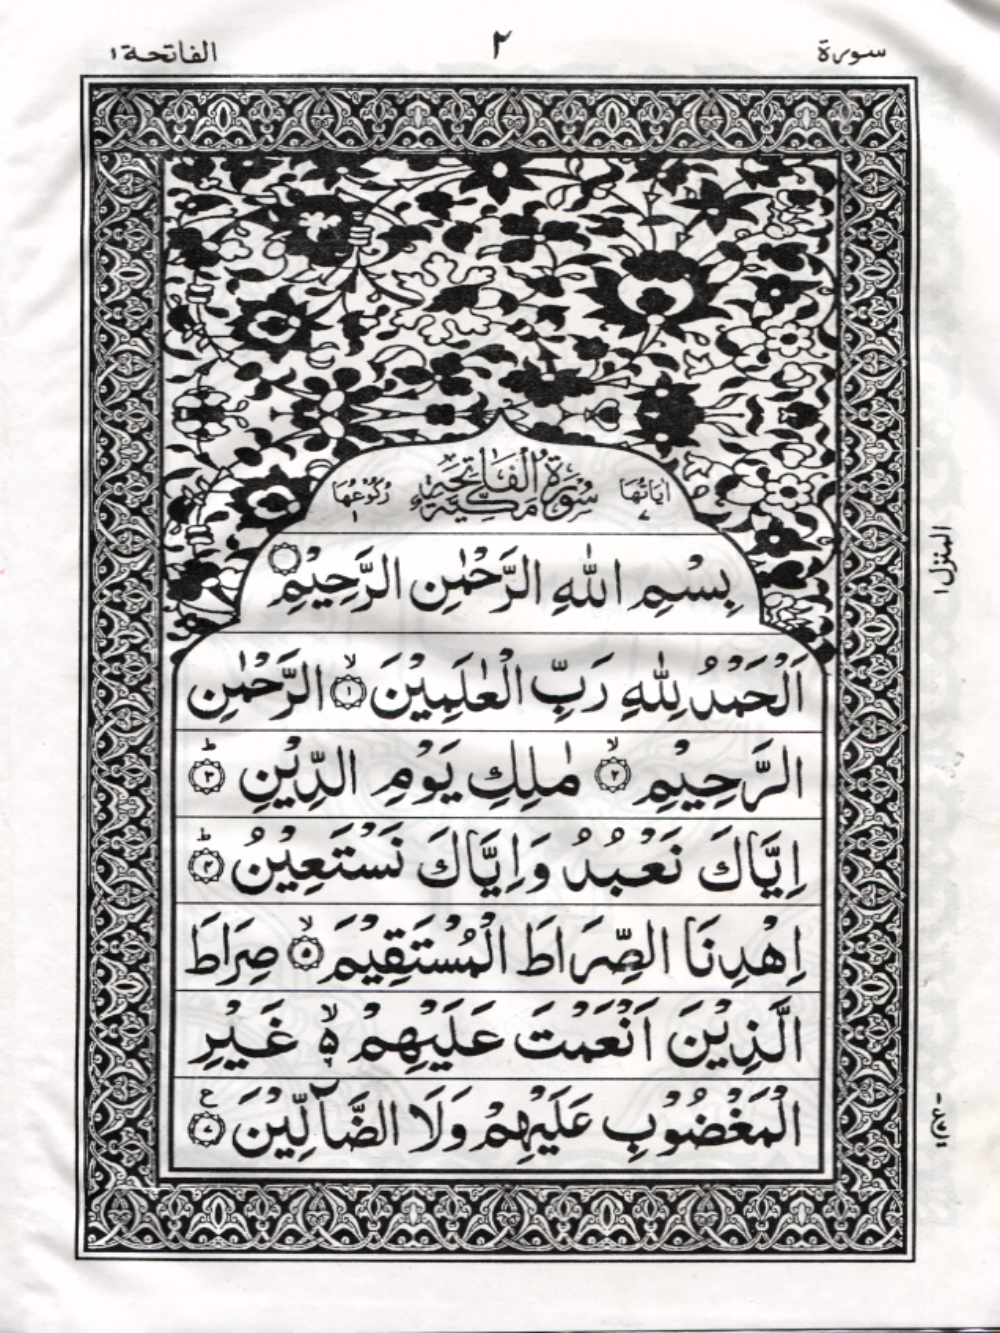 سورة
٢
الفاتحة ١
اٰيَاتُهَا ٧
سُوْرَةُ الْفَاتِحَةِ مَكِّيَّةٌ
رُكُوْعُهَا ١
بِسْمِ اللّٰهِ الرَّحْمٰنِ الرَّحِيْمِ
اَلْحَمْدُ لِلّٰهِ رَبِّ الْعٰلَمِيْنَ ۙ﴿۱﴾ الرَّحْمٰنِ
الرَّحِيْمِ ۙ﴿۲﴾ مٰلِكِ يَوْمِ الدِّيْنِ ؕ﴿۳﴾
اِيَّاكَ نَعْبُدُ وَاِيَّاكَ نَسْتَعِيْنُ ؕ﴿۴﴾
اِهْدِنَا الصِّرَاطَ الْمُسْتَقِيْمَ ۙ﴿۵﴾ صِرَاطَ
الَّذِيْنَ اَنْعَمْتَ عَلَيْهِمْ ۙ۬ غَيْرِ
الْمَغْضُوْبِ عَلَيْهِمْ وَلَا الضَّآلِّيْنَ ﴿۷﴾ ع
المنزل ١